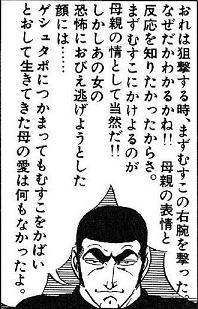 おれは狙撃する時、まずむすこの右腕を撃った。
なぜだかわかるかね!!　母親の表情と
反応を知りたかったからさ。
まずむすこにかけよるのが
母親の情として当然だ!!
しかしあの女の
恐怖におびえ逃げようとした
顔には……
ゲシュタポにつかまってもむすこをかばい
とおして生きてきた母の愛は何もなかったよ。